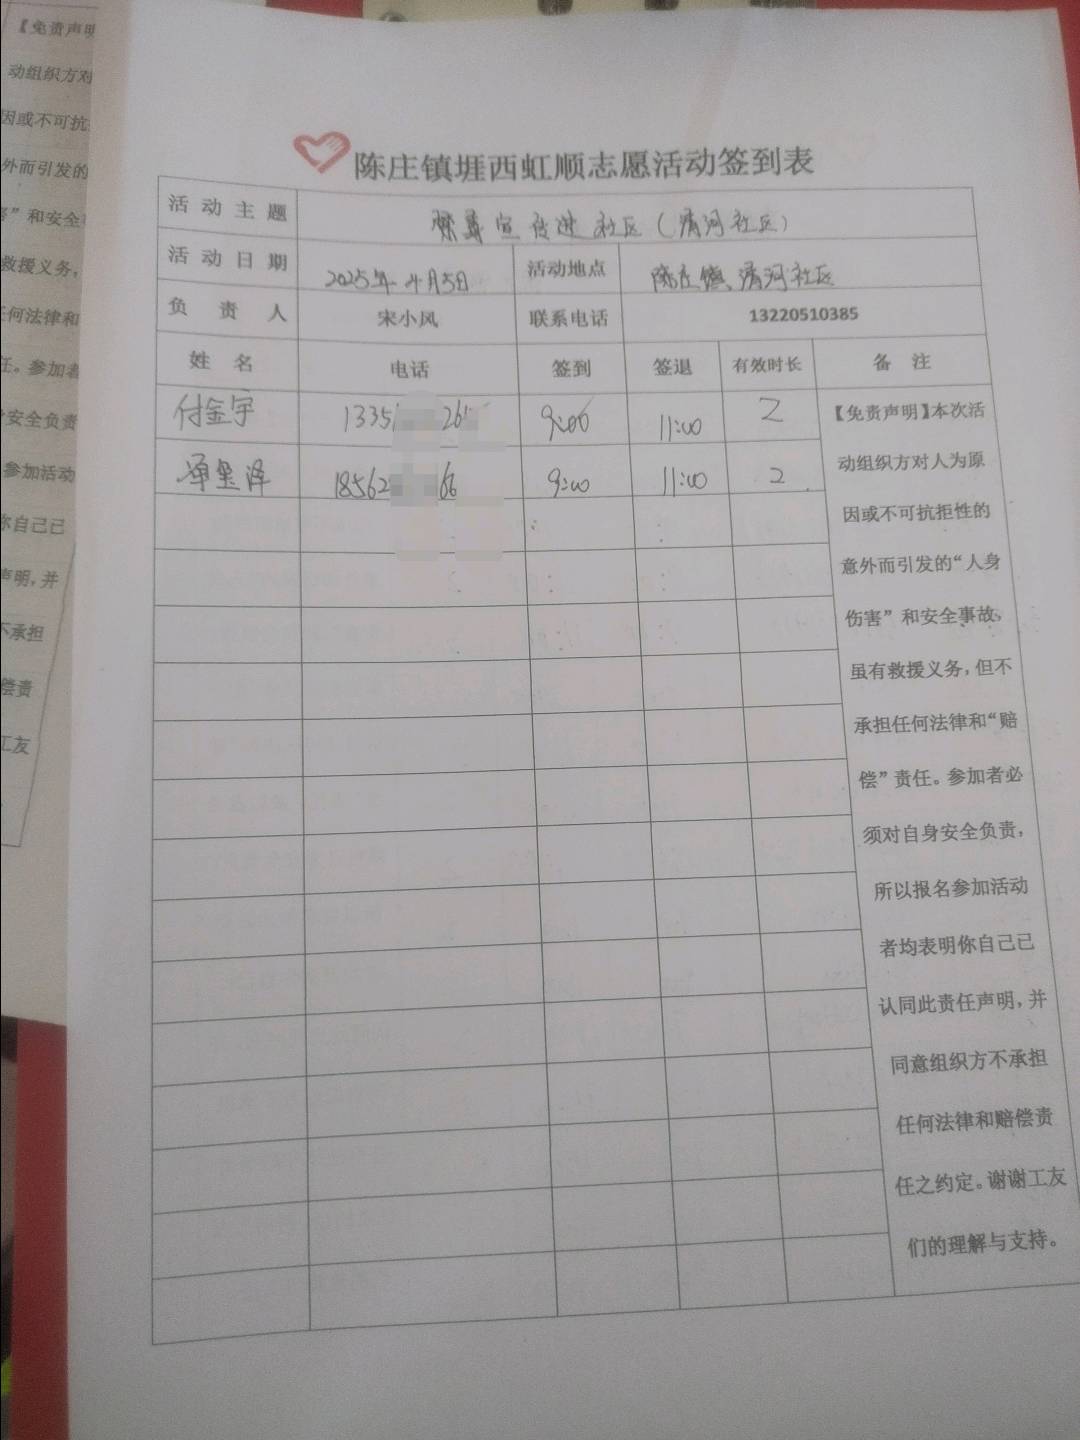 【免责声明
动组织方对
因或不可抗
外而引发的
害”和安全
救援义务，
任何法律和
任。参加者
安全负责
参加活动
你自己已
声明，并
不承担
偿责
工友
陈庄镇堐西虹顺志愿活动签到表
活动主题 禁毒宣传进社区（清河社区）
活动日期 2025年4月5日 活动地点 陈庄镇清河社区
负责人 宋小风 联系电话 13220510385
姓名 电话 签到 签退 有效时长 备注
付金宇 1335 26 9:00 11:00 2
泽 18562 66 9:00 11:00 2
【免责声明】本次活
动组织方对人为原
因或不可抗拒性的
意外而引发的“人身
伤害”和安全事故，
虽有救援义务，但不
承担任何法律和“赔
偿”责任。参加者必
须对自身安全负责，
所以报名参加活动
者均表明你自己已
认同此责任声明，并
同意组织方不承担
任何法律和赔偿责
任之约定。谢谢工友
们的理解与支持。